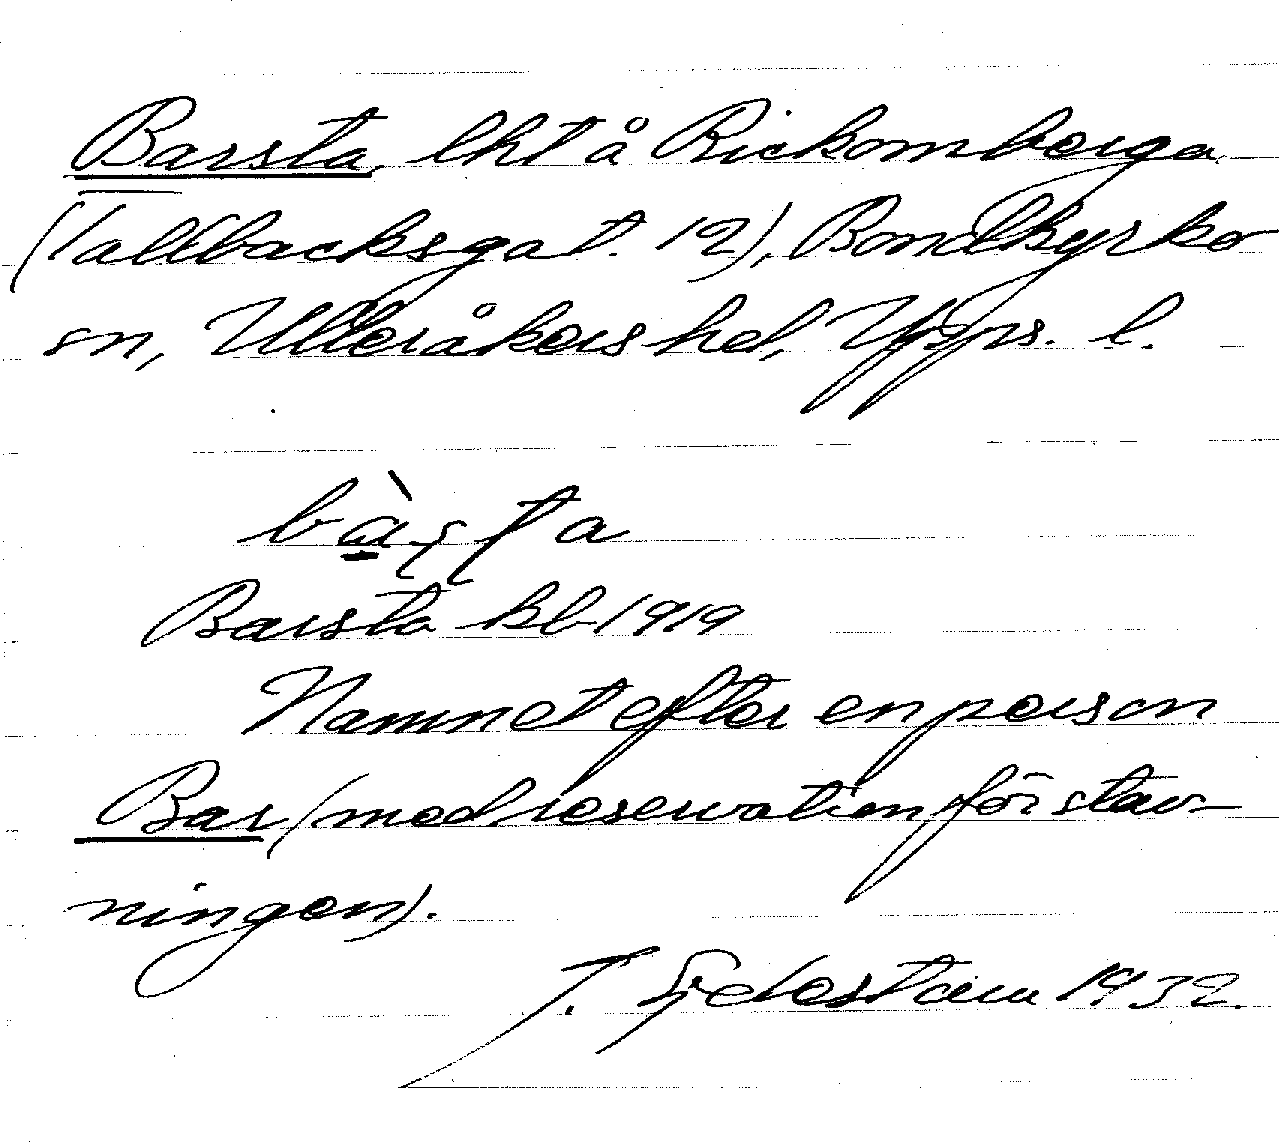 Barsta, lht å Rickomberga
(Tallbacksgat. 12), Bondkyrko
sn, Ulleråkers hd, Upps. l.
bà̱ʂʈa
Barsta kb 1919
Namnet efter en person
Bar (med reservation för stav-
ningen).
J. 1932.